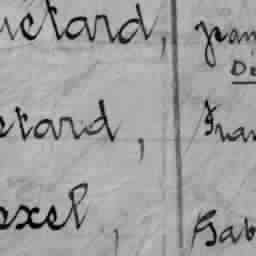 uctard, Jean
De
ctard, Fran
exel, Gab